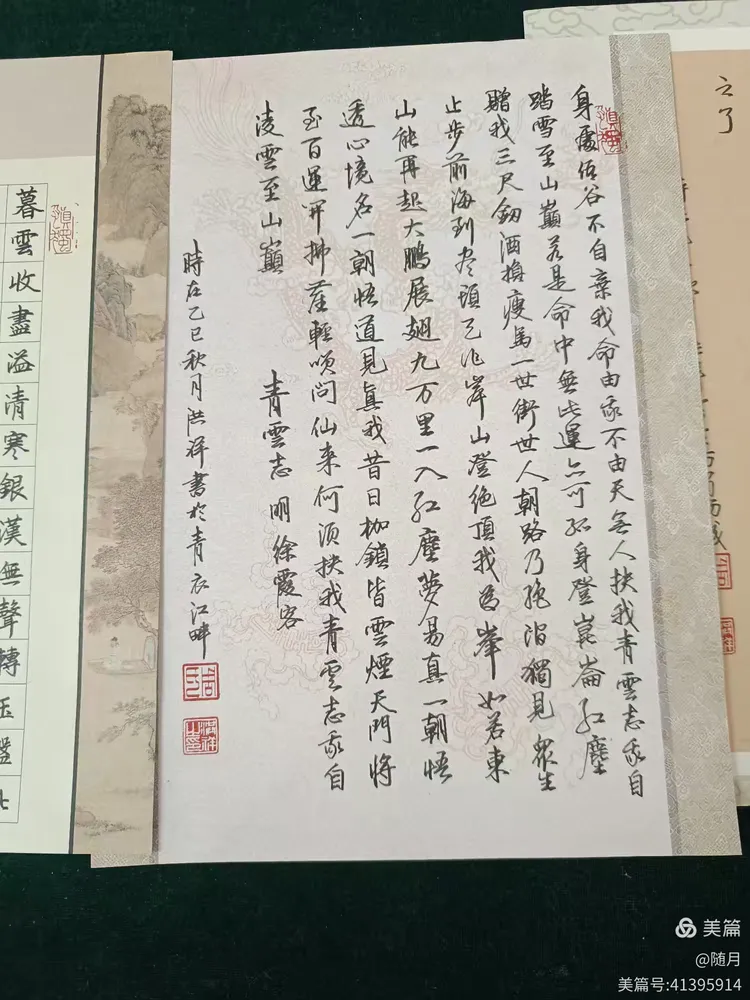 身處低谷不自棄我命由我不由天無人扶我青雲志我自
踏雪至山巔若是命中無此運亦可孤身登崑崙紅塵
贈我三尺劍酒換瘦馬一世街世人朝路乃絕獨見眾生
止步前海到盡頭天作岸山登絕頂我為峯如若東
山能再起大鵬展翅九万里一入紅塵夢易真一朝悟
透心境名一朝悟道見真我昔日枷鎖皆雲煙天門將
至百運開拂輕問仙來何須扶我青雲志我自
凌雲至山巔
青雲志 明 徐霞客
時在乙巳秋月洪祥書於青衣江畔
暮雲收盡溢清寒銀漢無聲轉玉盤
美篇
@随月
美篇号:41395914